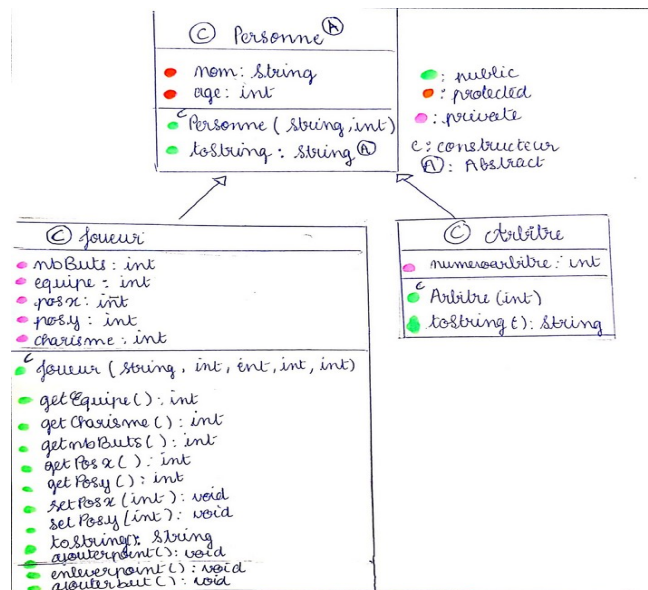 C Personne A
nom: String
age: int
c Personne (string, int)
toString: String A
: public
: protected
: private
c: constructeur
A: Abstract
C Joueur
nbButs: int
equipe: int
posx: int
posy: int
charisme: int
c Joueur (string, int, int, int, int)
getEquipe(): int
getCharisme(): int
getnbButs(): int
getPosx(): int
getPosy(): int
setPosx(int): void
setPosy(int): void
toString(): String
ajouterpoint(): void
enleverpoint(): void
ajouterbut(): void
C Arbitre
numeroarbitre: int
c Arbitre(int)
toString(): String